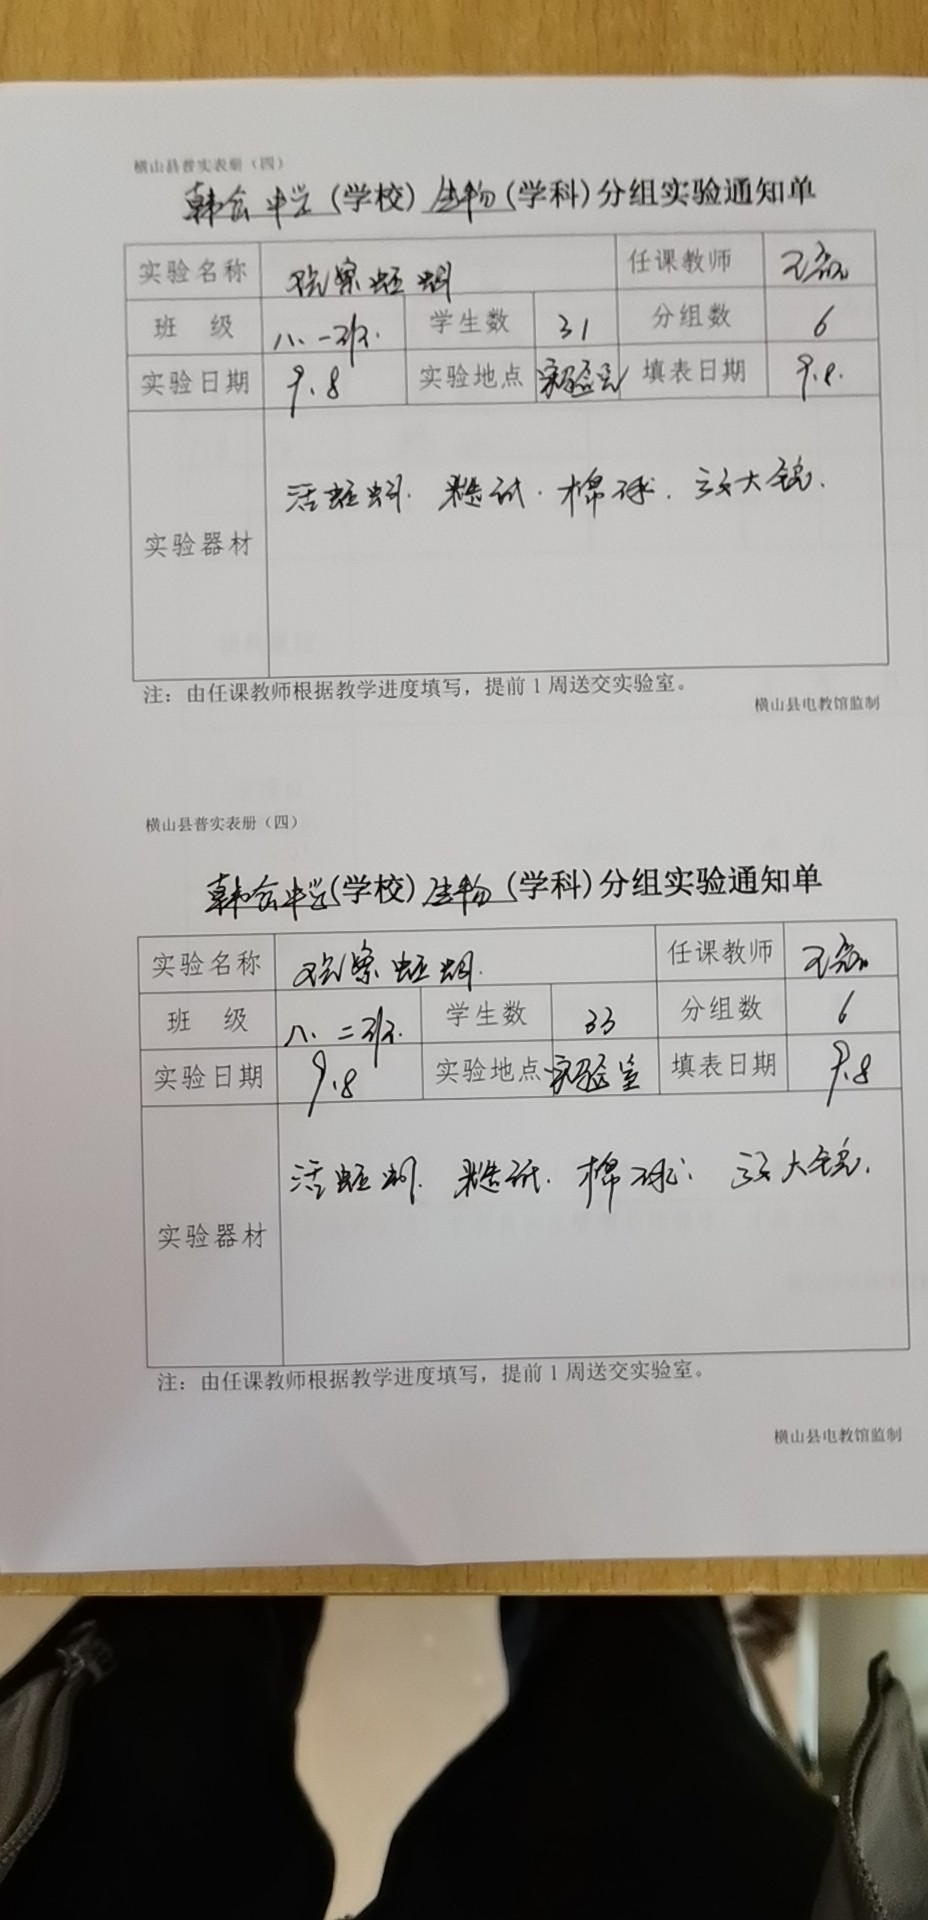 横山县普实表册（四）
韩会中学（学校）生物（学科）分组实验通知单
实验名称 观察蚯蚓 任课教师
班 级 八.一班. 学生数 31 分组数 6
实验日期 9.8 实验地点 实验室 填表日期 9.8.
实验器材 活蚯蚓. 糙纸. 棉球. 放大镜.
注：由任课教师根据教学进度填写，提前1周送交实验室。
横山县电教馆监制
横山县普实表册（四）
韩会中学（学校）生物（学科）分组实验通知单
实验名称 观察蚯蚓. 任课教师
班 级 八.二班. 学生数 33 分组数 6
实验日期 9.8 实验地点 实验室 填表日期 9.8
实验器材 活蚯蚓. 糙纸. 棉球. 放大镜.
注：由任课教师根据教学进度填写，提前1周送交实验室。
横山县电教馆监制